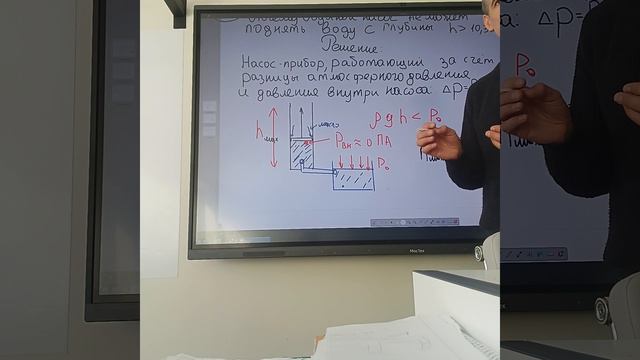 поднять воду с глубины h > 10,3
Решение:
Насос-прибор, работающий за счёт
разницы атмосферного давления
и давления внутри насоса: Δp=
hмах
ρgh < P₀
Pвн ≈ 0 ПА
P₀
MaxTex